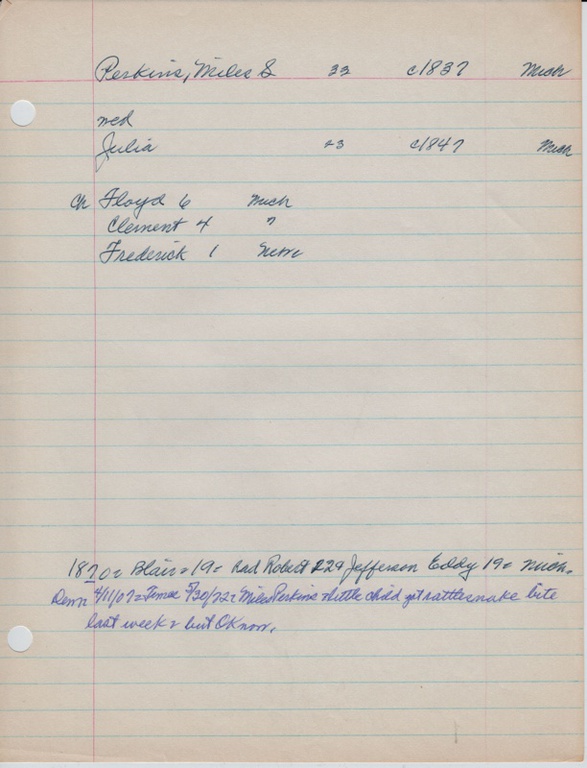 Perkins, Miles S 33 c1837 Mich
med
Julia 23 c1847 Mich
Ch Floyd 6 Mich
Clement 4 "
Frederick 1 Nebr
1870= Blair= 19= had Robert 22 & Jefferson Eddy 19= Mich.
Dem 4/11/07= Times 5/30/72= Miles Perkins little child got rattlesnake bite
last week= but OK now.